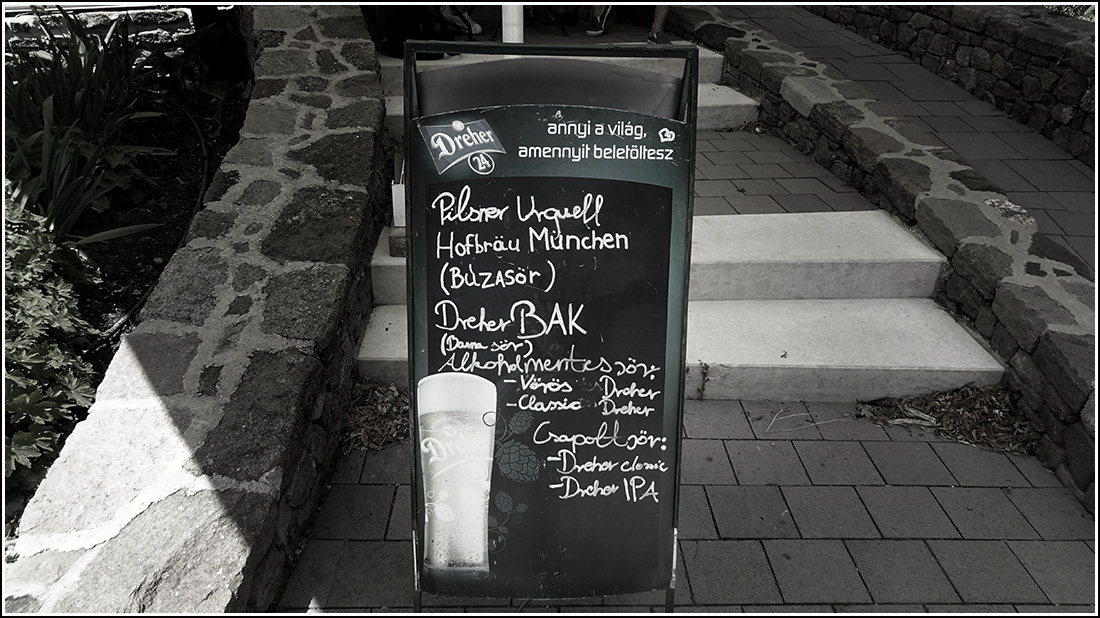 Dreher
24
annyi a világ,
amennyit beletöltesz
Pilsner Urquell
Hofbräu München
(BÚZASÖR)
Dreher BAK
(Barna sör)
Alkoholmentes sör:
- Vörös Dreher
- Classic Dreher
Csapolt sör:
- Dreher classic
- Dreher IPA
Dreher